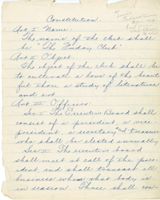 Constitution.
Art. I Name.
The name of the club shall
be "The Friday Club"
Art. II Object.
The object of the club shall be
to cultivate a love of the beaut-
iful thru a study of literature
and art.
Art. III Officers.
Sec. I The Executive Board shall
consist of a president, a vice
president, a secretary and treasurer
who shall be elected annually
Sec. II The executive board
shall meet at call of the pres-
ident and shall transact all
business when club body is
in recess. These shall con